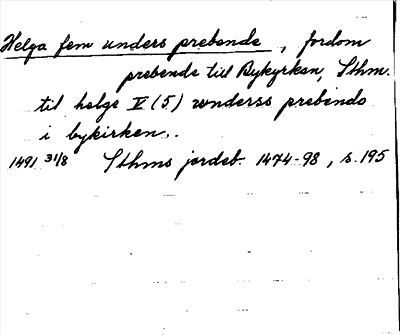 Helga fem unders prebende, fordom
prebende till Bykyrkan, Sthm.
til helge V (5) wnderss prebendo
i bykirken.
1491 31/8 Sthms jordeb. 1474-98, s. 195